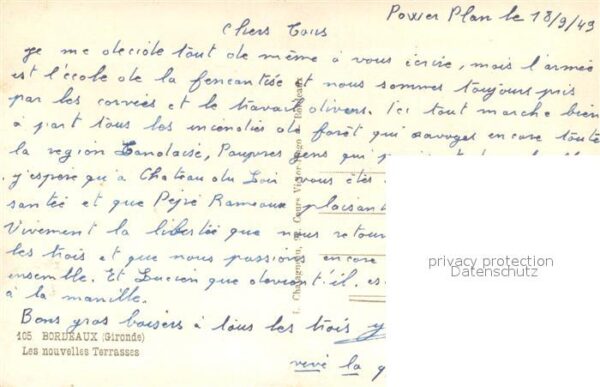 Power Plan le 18/9/49
Chers Tous
Je me decide tout de même à vous écrire, mais l'armée
est l'école de la et nous sommes toujours pris
par les corvées et le travail divers. Ici tout marche bien
à part tous les incendies de forêt qui encore toute
la region Landaise, Pauvres gens qui
j'espere qu'a Chateau du Loir vous êtes
santée et que Rameaux plaisan
Vivement la libertée que nous retour
les trois et que nous passions encore
ensemble. Et Lucien que devient'il, es
à la manille.
Bons gros baisers à tous les trois
vive la q
105 BORDEAUX (Gironde)
Les nouvelles Terrasses
Cours Victor-Hugo Bordeaux
privacy protection
Datenschutz